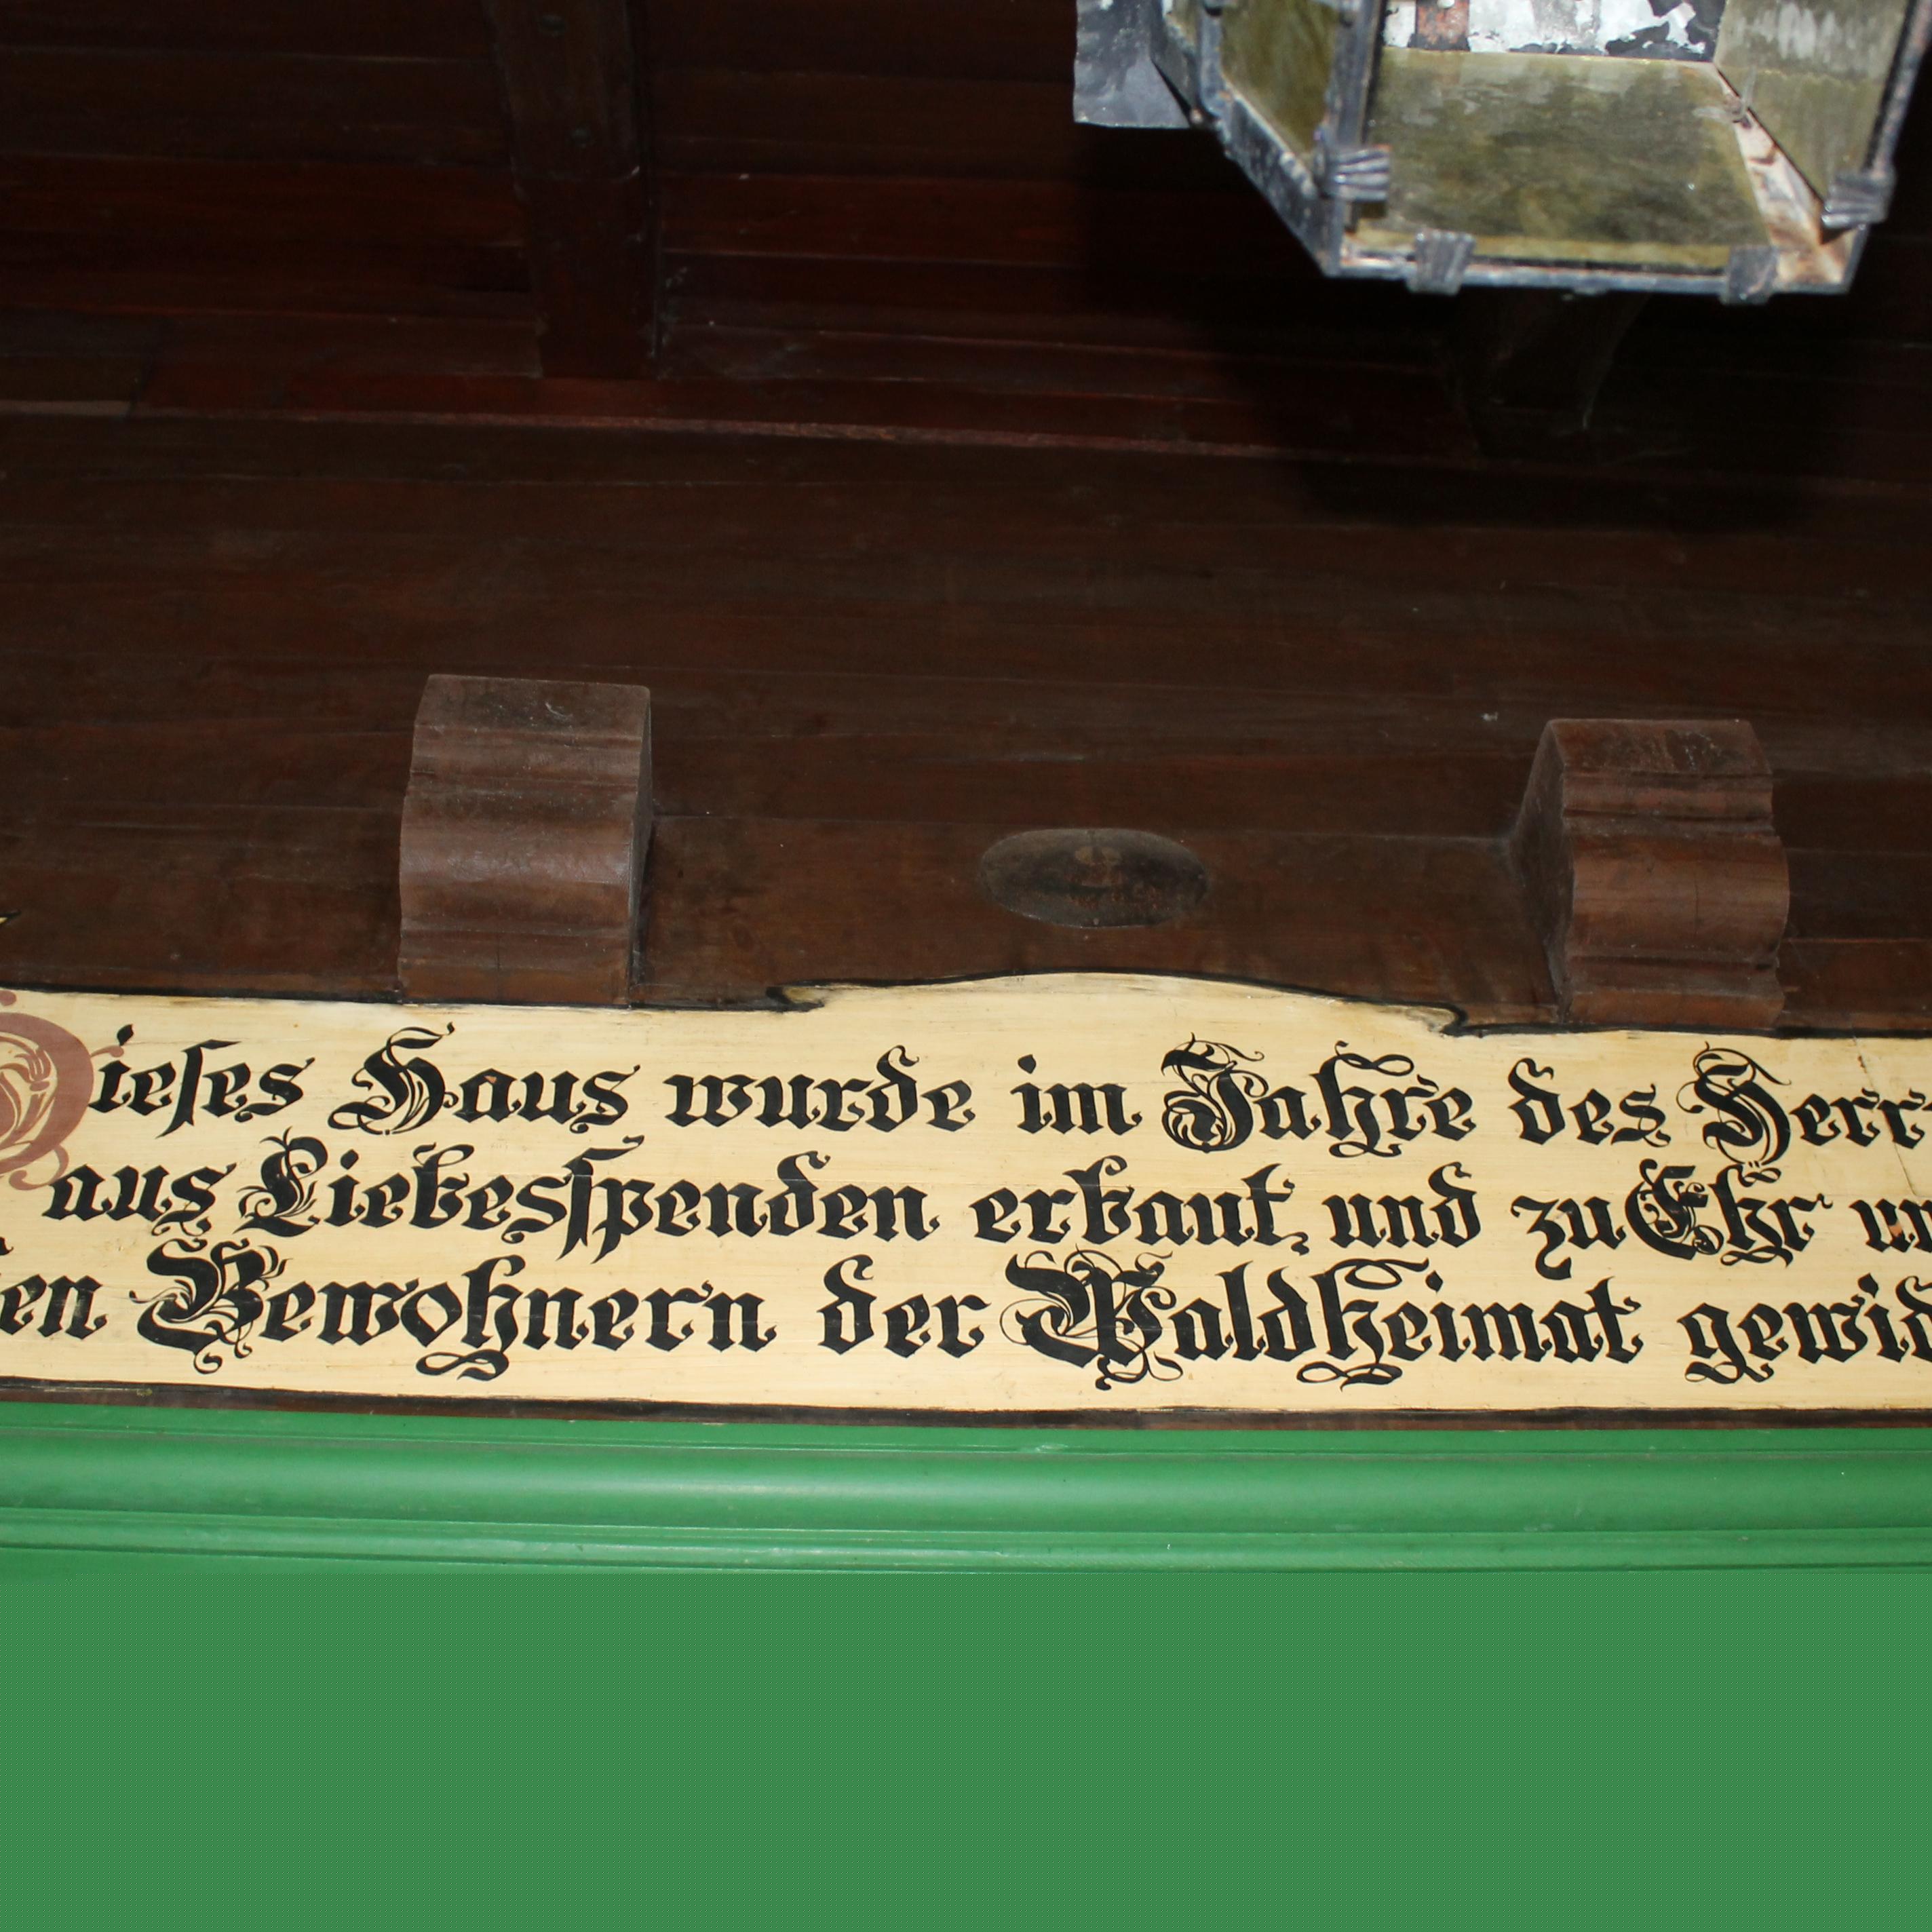 Dieſes Haus wurde im Jahre des Herr
aus Liebesſpenden erbaut, und zu Ehr un
en Bewohnern der Waldheimat gewid